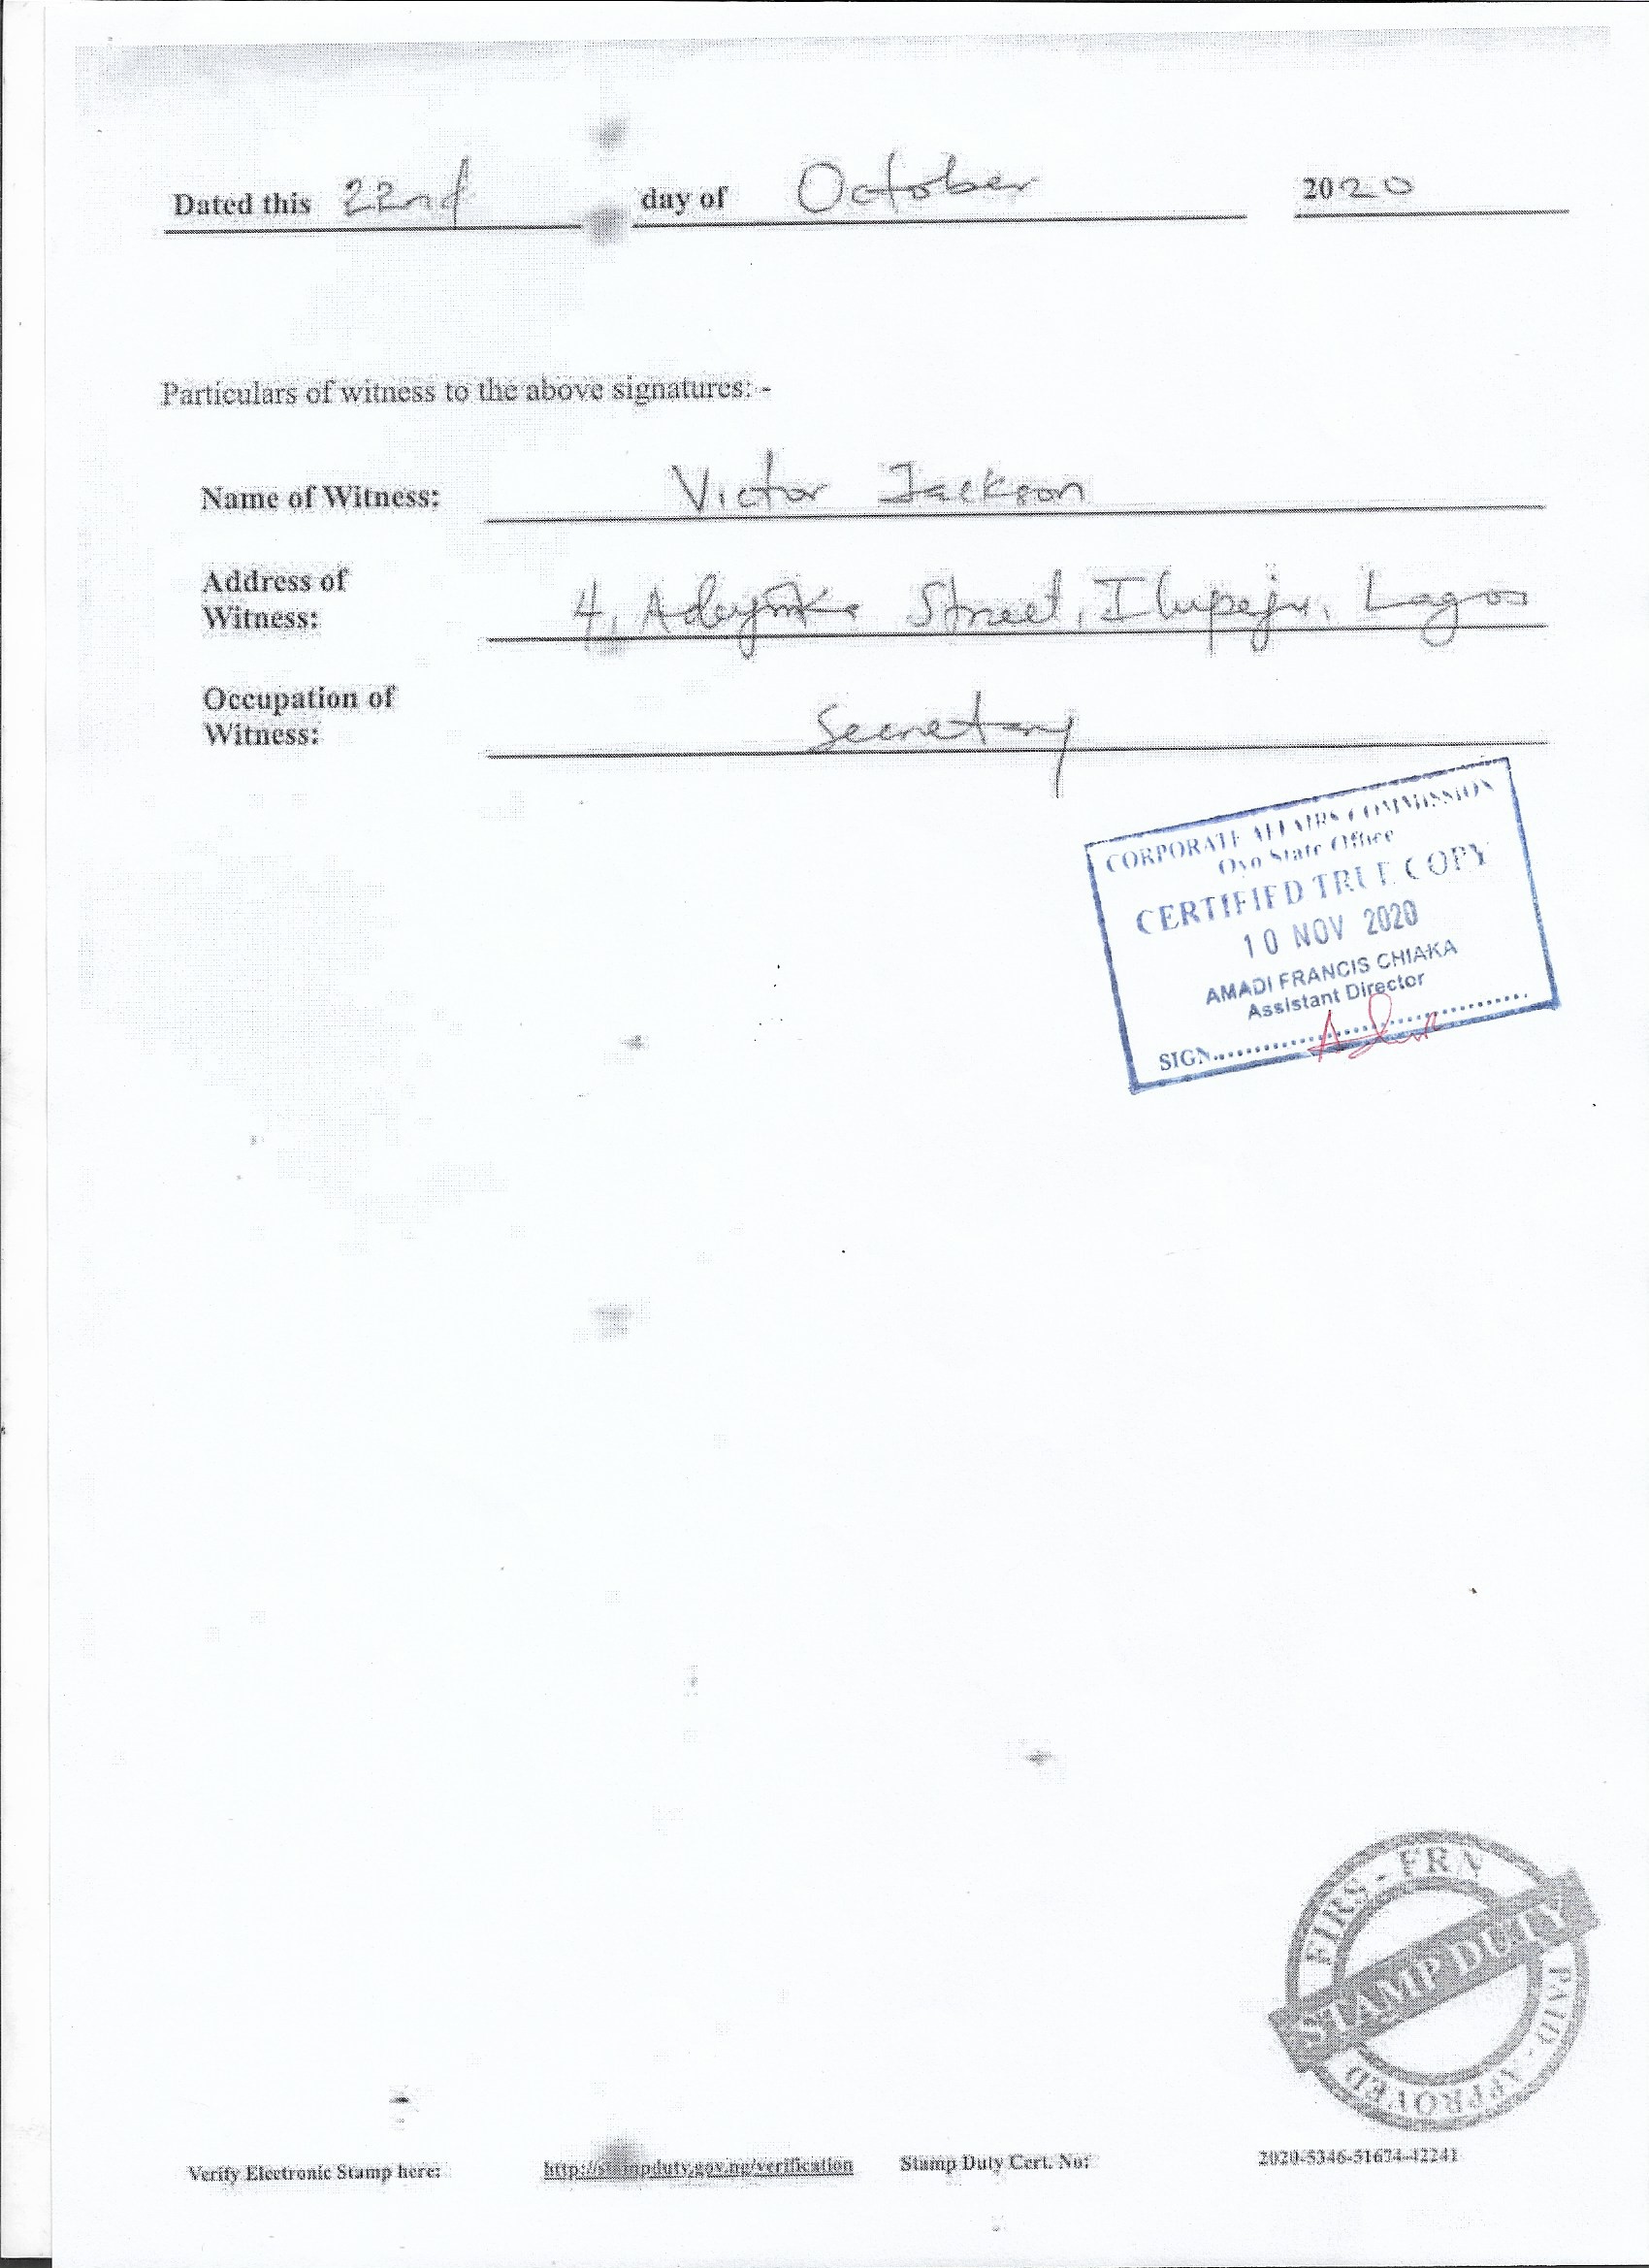 Dated this 22nd day of October 2020
Particulars of witness to the above signatures: -
Name of Witness: Victor Jackson
Address of
Witness: 4, Adeyinka Street, Ilupeju, Lagos
Occupation of
Witness: Secretary
CORPORATE AFFAIRS COMMISSION
Oyo State Office
CERTIFIED TRUE COPY
10 NOV 2020
AMADI FRANCIS CHIAKA
Assistant Director
SIGN
FIRS - FRN
STAMP DUTY
PAID - APPROVED
Verify Electronic Stamp here: http://stampduty.gov.ng/verification Stamp Duty Cert. No: 2020-5346-51634-42241